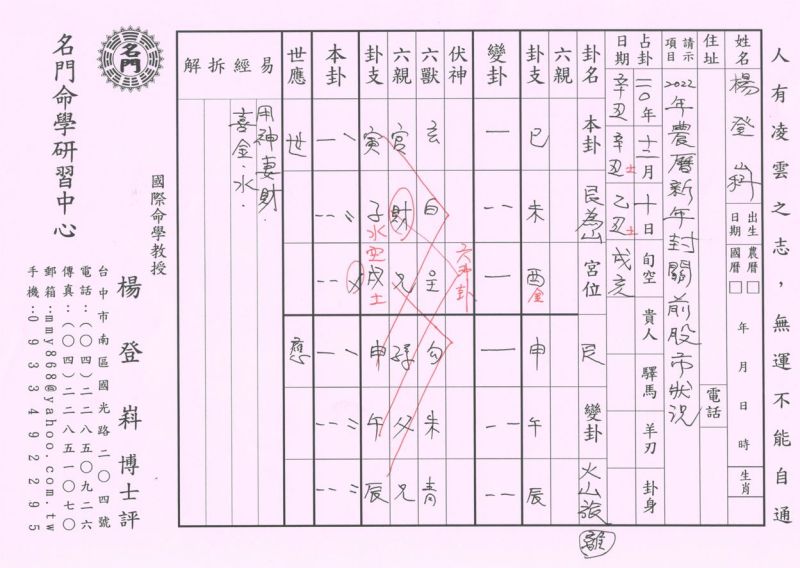 人有凌雲之志，無運不能自通
姓名 楊登嵙
出生日期 農曆□ 國曆□ 年 月 日 時 生肖
住址
電話
請示項目 2022年農曆新年封關前股市狀況
占卦日期 二〇年十二月十日 旬空 貴人 驛馬 羊刃 卦身
辛丑 辛丑土 乙丑土 戌亥
卦名 本卦 艮為山 宮位 艮 變卦 火山旅 離
六親
卦支 巳 未 酉金 申 午 辰
變卦
伏神
六獸 玄 白 勾 朱 青
六獸 六親 官 財 兄 孫 父 兄
六冲卦
卦支 寅 子水空 戌土 申 午 辰
本卦
世應 世 應
易經拆解
用神妻財
喜金.水.
名門
名門命學研習中心
國際命學教授
楊登嵙博士評
台中市南區國光路二〇四號
電話：(〇四)二二八五〇九二六
傳真：(〇四)二二八五一〇七〇
郵箱：mmy868@yahoo.com.tw
手機：0933492295